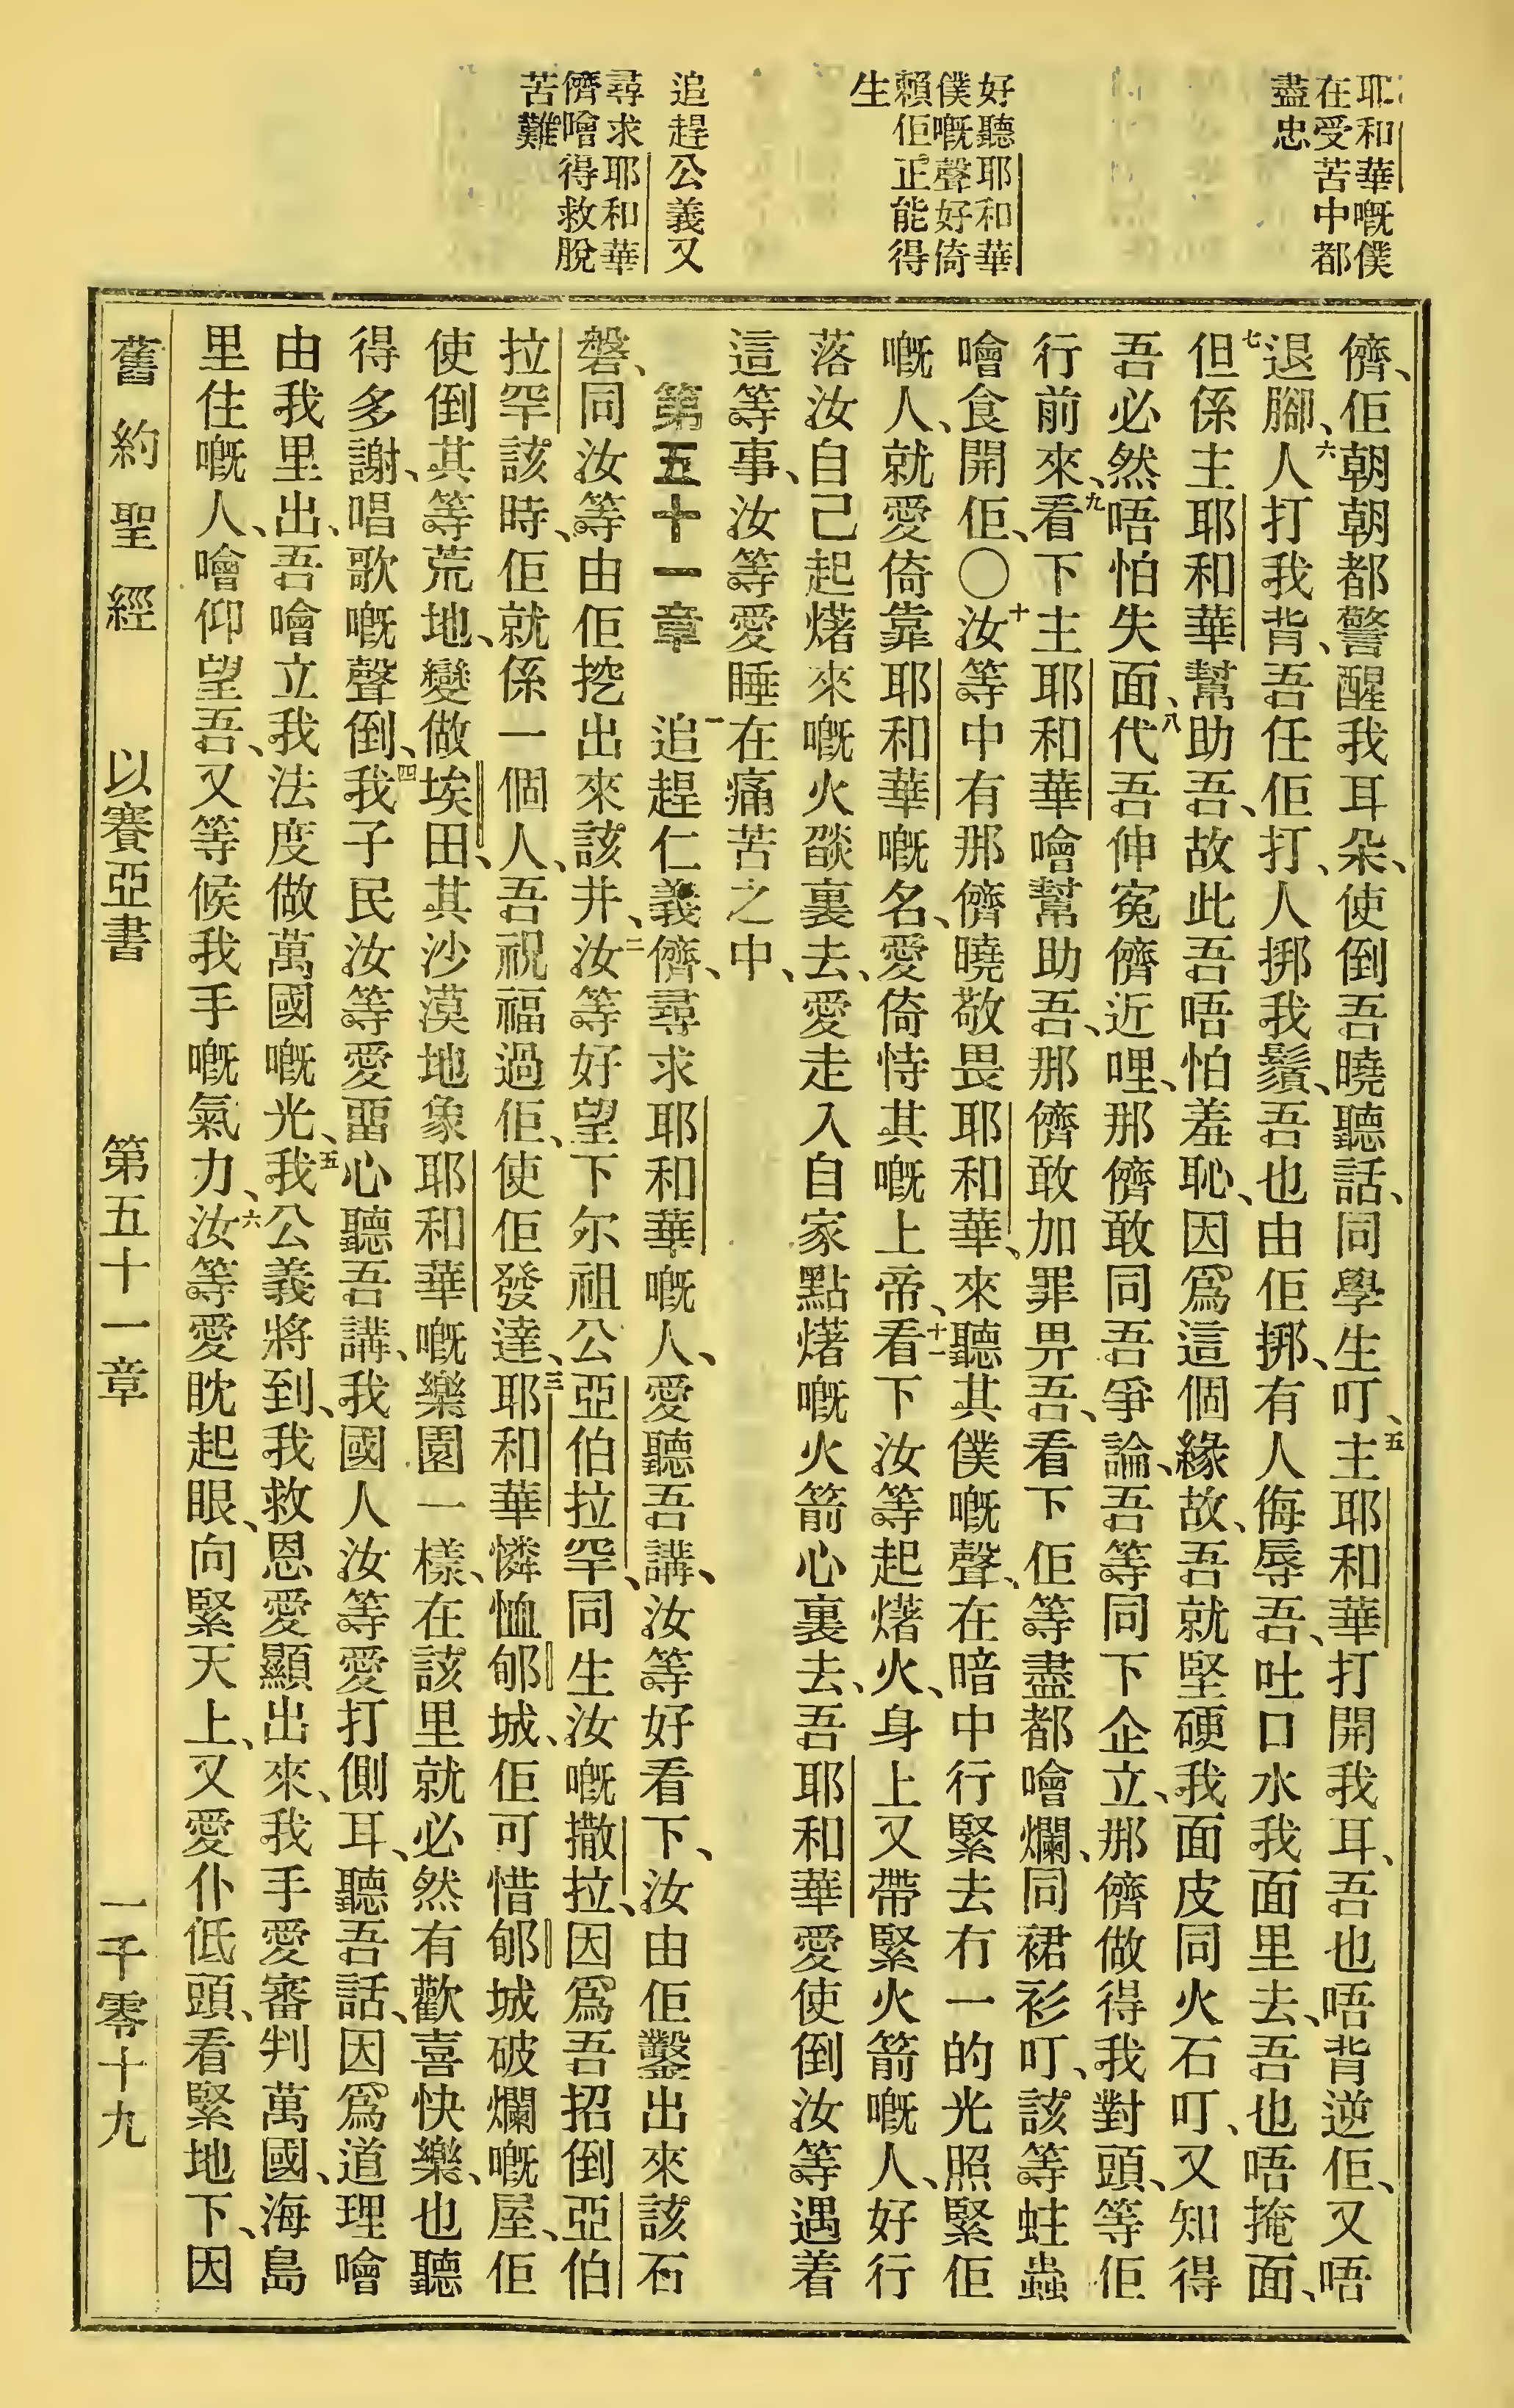 耶和華嘅僕
在受苦中都
盡忠
好聽耶和華
僕嘅聲好倚
賴佢正能得
生
追趕公義又
尋求耶和華
儕噲得救脫
苦難
儕、佢朝朝都警醒我耳朵、使倒吾曉聽話、同學生叮、五主耶和華打開我耳、吾也唔背逆佢、又唔
退腳、六人打我背、吾任佢打、人挷我鬚、吾也由佢挷、有人侮辱吾、吐口水我面里去、吾也唔掩面、
七但係主耶和華幫助吾、故此吾唔怕羞恥、因爲這個緣故、吾就堅硬我面皮同火石叮、又知得
吾必然唔怕失面、八代吾伸寃儕近哩、那儕敢同吾爭論、吾等同下企立、那儕做得我對頭、等佢
行前來、九看下主耶和華噲幫助吾、那儕敢加罪畀吾、看下佢等盡都噲爛、同裙衫叮、該等蛀蟲
噲食開佢、〇十汝等中有那儕曉敬畏耶和華、來聽其僕嘅聲、在暗中行緊去冇一的光照緊佢
嘅人、就愛倚靠耶和華嘅名、愛倚恃其嘅上帝、十一看下汝等起㷮火、身上又帶緊火箭嘅人、好行
落汝自己起㷮來嘅火燄裏去、愛走入自家點㷮嘅火箭心裏去、吾耶和華愛使倒汝等遇着
這等事、汝等愛睡在痛苦之中、
第五十一章　一追趕仁義儕、尋求耶和華嘅人、愛聽吾講、汝等好看下、汝由佢鑿出來該石
磐、同汝等由佢挖出來該井、二汝等好望下尔祖公亞伯拉罕、同生汝嘅撒拉、因爲吾招倒亞伯
拉罕該時、佢就係一個人、吾祝福過佢、使佢發達、三耶和華憐恤郇城、佢可惜郇城破爛嘅屋、佢
使倒其等荒地、變做埃田、其沙漠地象耶和華嘅樂園一樣、在該里就必然有歡喜快樂、也聽
得多謝、唱歌嘅聲倒、四我子民汝等愛畱心聽吾講、我國人汝等愛打側耳、聽吾話、因爲道理噲
由我里出、吾噲立我法度做萬國嘅光、五我公義將到、我救恩愛顯出來、我手愛審判萬國、海島
里住嘅人、噲仰望吾、又等候我手嘅氣力、六汝等愛眈起眼、向緊天上、又愛仆低頭、看緊地下、因
舊約聖經　以賽亞書　第五十一章　一千零十九